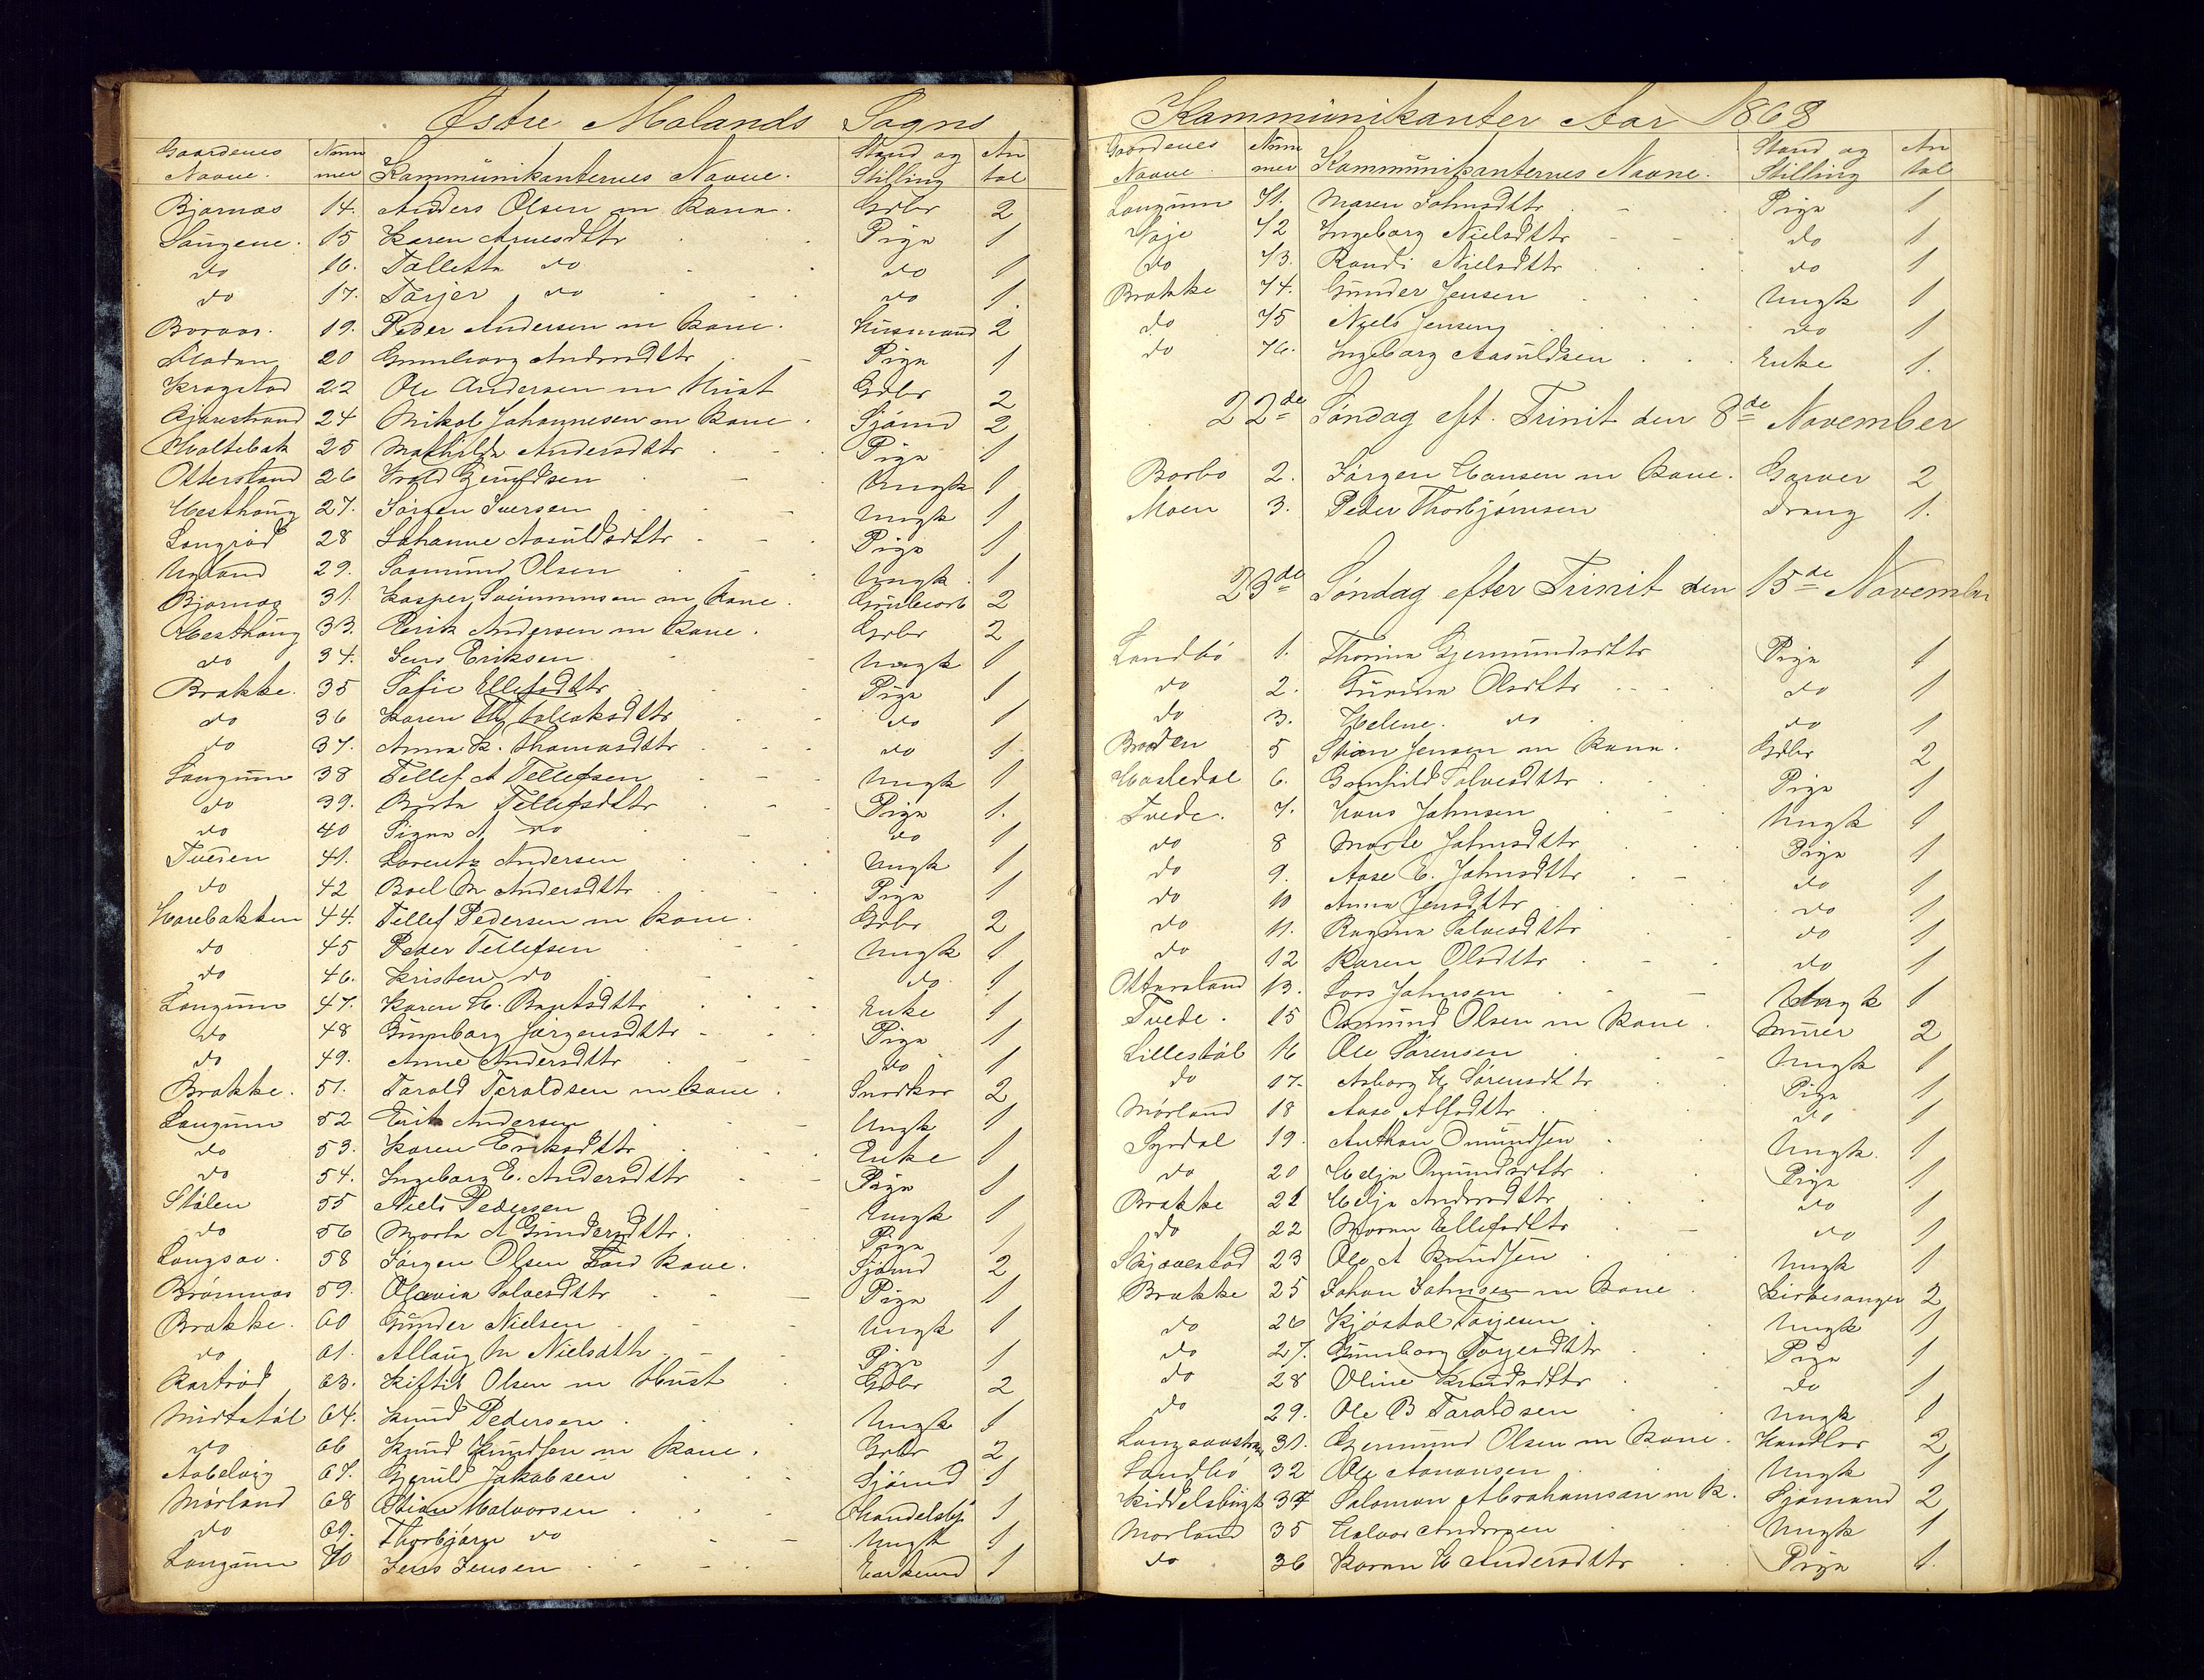 Østre Molands Sogns
Gaardenes Navne. Num mer Kommunikanternes Navne. Stand og Stilling An tal
Bjørnas 14. Anders Olsen m Kone. Gdbr 2
Saugene. 15 Karen Arnesdttr Pige 1
do 16. Tallette do do 1
do 17. Tarjer do do 1
Boraas. 19. Peder Andersen m Kone. Husmand 2
20 Gunnborg Andersdttr Pige 1
Kragstad 22 Ole Andersen m Hust Gdbr 2
Kjørestrand 24 Nikol Johannesen m Kone Sjömd 2
Holtebak 25 Mathilde Andersdttr Pige 1
Ottersland 26 Ungk 1
Hesthaug 27. Jørgen Iversen Ungk 1
Longrød 28 Johanne Aasuldsdttr Pige 1
Ugland 29. Saamund Olsen Ungk 1
Bjornos 31. Kasper m Kone. 2
Hesthaug 33. Erik Andersen m Kone. Gdbr 2
do 34. Jens Eriksen Ungk 1
Brække. 35 Sofie Ellefsdttr Pige 1
do 36 Karen do 1
do 37. Anna K. Thomasdttr do 1
Longum 38 Tellef A Tellefsen Ungk 1
do 39. Berta Tellefsdttr Pige 1.
do 40 Signe A do do 1
Tveden 41. Lorentz Andersen Ungk 1
do 42 Boel M Andersdttr Pige 1
Harebakken 44. Tellef Pedersen m Kone. Gdbr 2
do 45 Peder Tellefsen Ungk 1
do 46. Kristen do do 1
Longum 47. Karen H. Bentsdttr Enke 1
do 48 Gunnborg Jørgensdttr Pige 1
do 49. Anne Andersdttr do 1
Brække. 51. Tarald Taraldsen m Kone Snedker 2
Longum 52 Erik Andersen Ungk 1
do 53. Karen Eriksdttr Enke 1
do 54. Ingeborg E. Andersdttr Pige 1
Stølen 55 Niels Pedersen Ungk 1
do 56 Marta A Gundersdttr. Pige 1
Longsav. 58 Jørgen Olsen Kone. Sjømd 2
Brømnas 59. Olavia Salvesdttr Pige 1
Brække. 60 Gunder Nielsen Ungk 1
do 61. Allaug M Nielsdttr Pige 1
Rørtrød 63. Kittil Olsen m Hust Gdbr 2
Midtstøl 64. Knud Pedersen Ungk 1
do 66 Knud Knudsen m Kone. Gdbr 2
Nabelvig 67. Gjeruld Jakobsen Sjömd 1
Mørland 68 Stian Halvorsen Handelsbj 1
do 69. Thorbjørn do Ungk 1
Longum 70 Jens Jensen Enkemd 1
Kommunikanter Aar 1868
Gaardenes Navne. Num mer Kommunikanternes Navne. Stand og Stilling An tal
Longum 71. Maren Johnsdttr Pige 1
Vøje 72 Ingeborg Nielsdttr do 1
do 73. Randi Nielsdttr do 1
Brække 74. Gunder Jensen Ungk 1
do 75 Niels Jensen do 1
do 76. Ingeborg Aasuldsen Enke 1.
22de Søndag eft. Trinit den 8de November
Borbo 2. Jørgen Hansen m Kone. Garver 2
Moen 3. Peder Thorbjørnsen Dreng 1.
23de Søndag efter Trinit den 15de November
Landbø 1. Thorine Gjermundsdttr Pige 1
do 2. Gurine Olsdttr do 1
do 3. Helene. do do 1
Braaden 5 Stian Jensen m Kone. Gdbr 2
Hasledal 6. Gunhild Salvesdttr Pige 1
Tvede. 7. Hans Johnsen Ungk 1
do 8 Marte Johnsdttr Pige 1
do 9. Aase E. Johnsdttr do 1
do 10 Anna Jensdttr do 1
do 11. Salvesdttr do 1
do 12 Karen Olsdttr do 1
Ottersland 13. Lars Johnsen Ungk 1
Tvede. 15 Osmund Olsen m Kone. Murer 2
Lillestøl 16 Ole Sørensen Ungk 1
do 17. Asborg H Sørensdttr Pige 1
Mørland 18 Aase Alfsdttr do 1
Syrdal 19. Anthon Omundsen Ungk. 1
do 20 Helje Omundsdttr Pige 1
Brække 21 Helje Andersdttr do 1
do 22 Maren Ellefsdttr do 1
Skjævestad 23 Ole A Knudsen Ungk 1
Brække 25 Johan Johnsen m Kone Kirkesanger 2
do 26 Kjøstol Torjesen Ungk 1
do 27. Gunnborg Torjesdttr Pige 1
do 28 Oline Knudsdttr do 1
do 29. Ole B Taraldsen Ungk 1
31. Gjermund Olsen m Kone. Handler 2
Landbø 32 Ole Aanonsen Ungk 1
34 Salomon Abrahamsen m K. Sjømand 2
Mørland 35 Halvor Andersen Ungk 1
do 36 Karen H Andersdttr Pige 1.